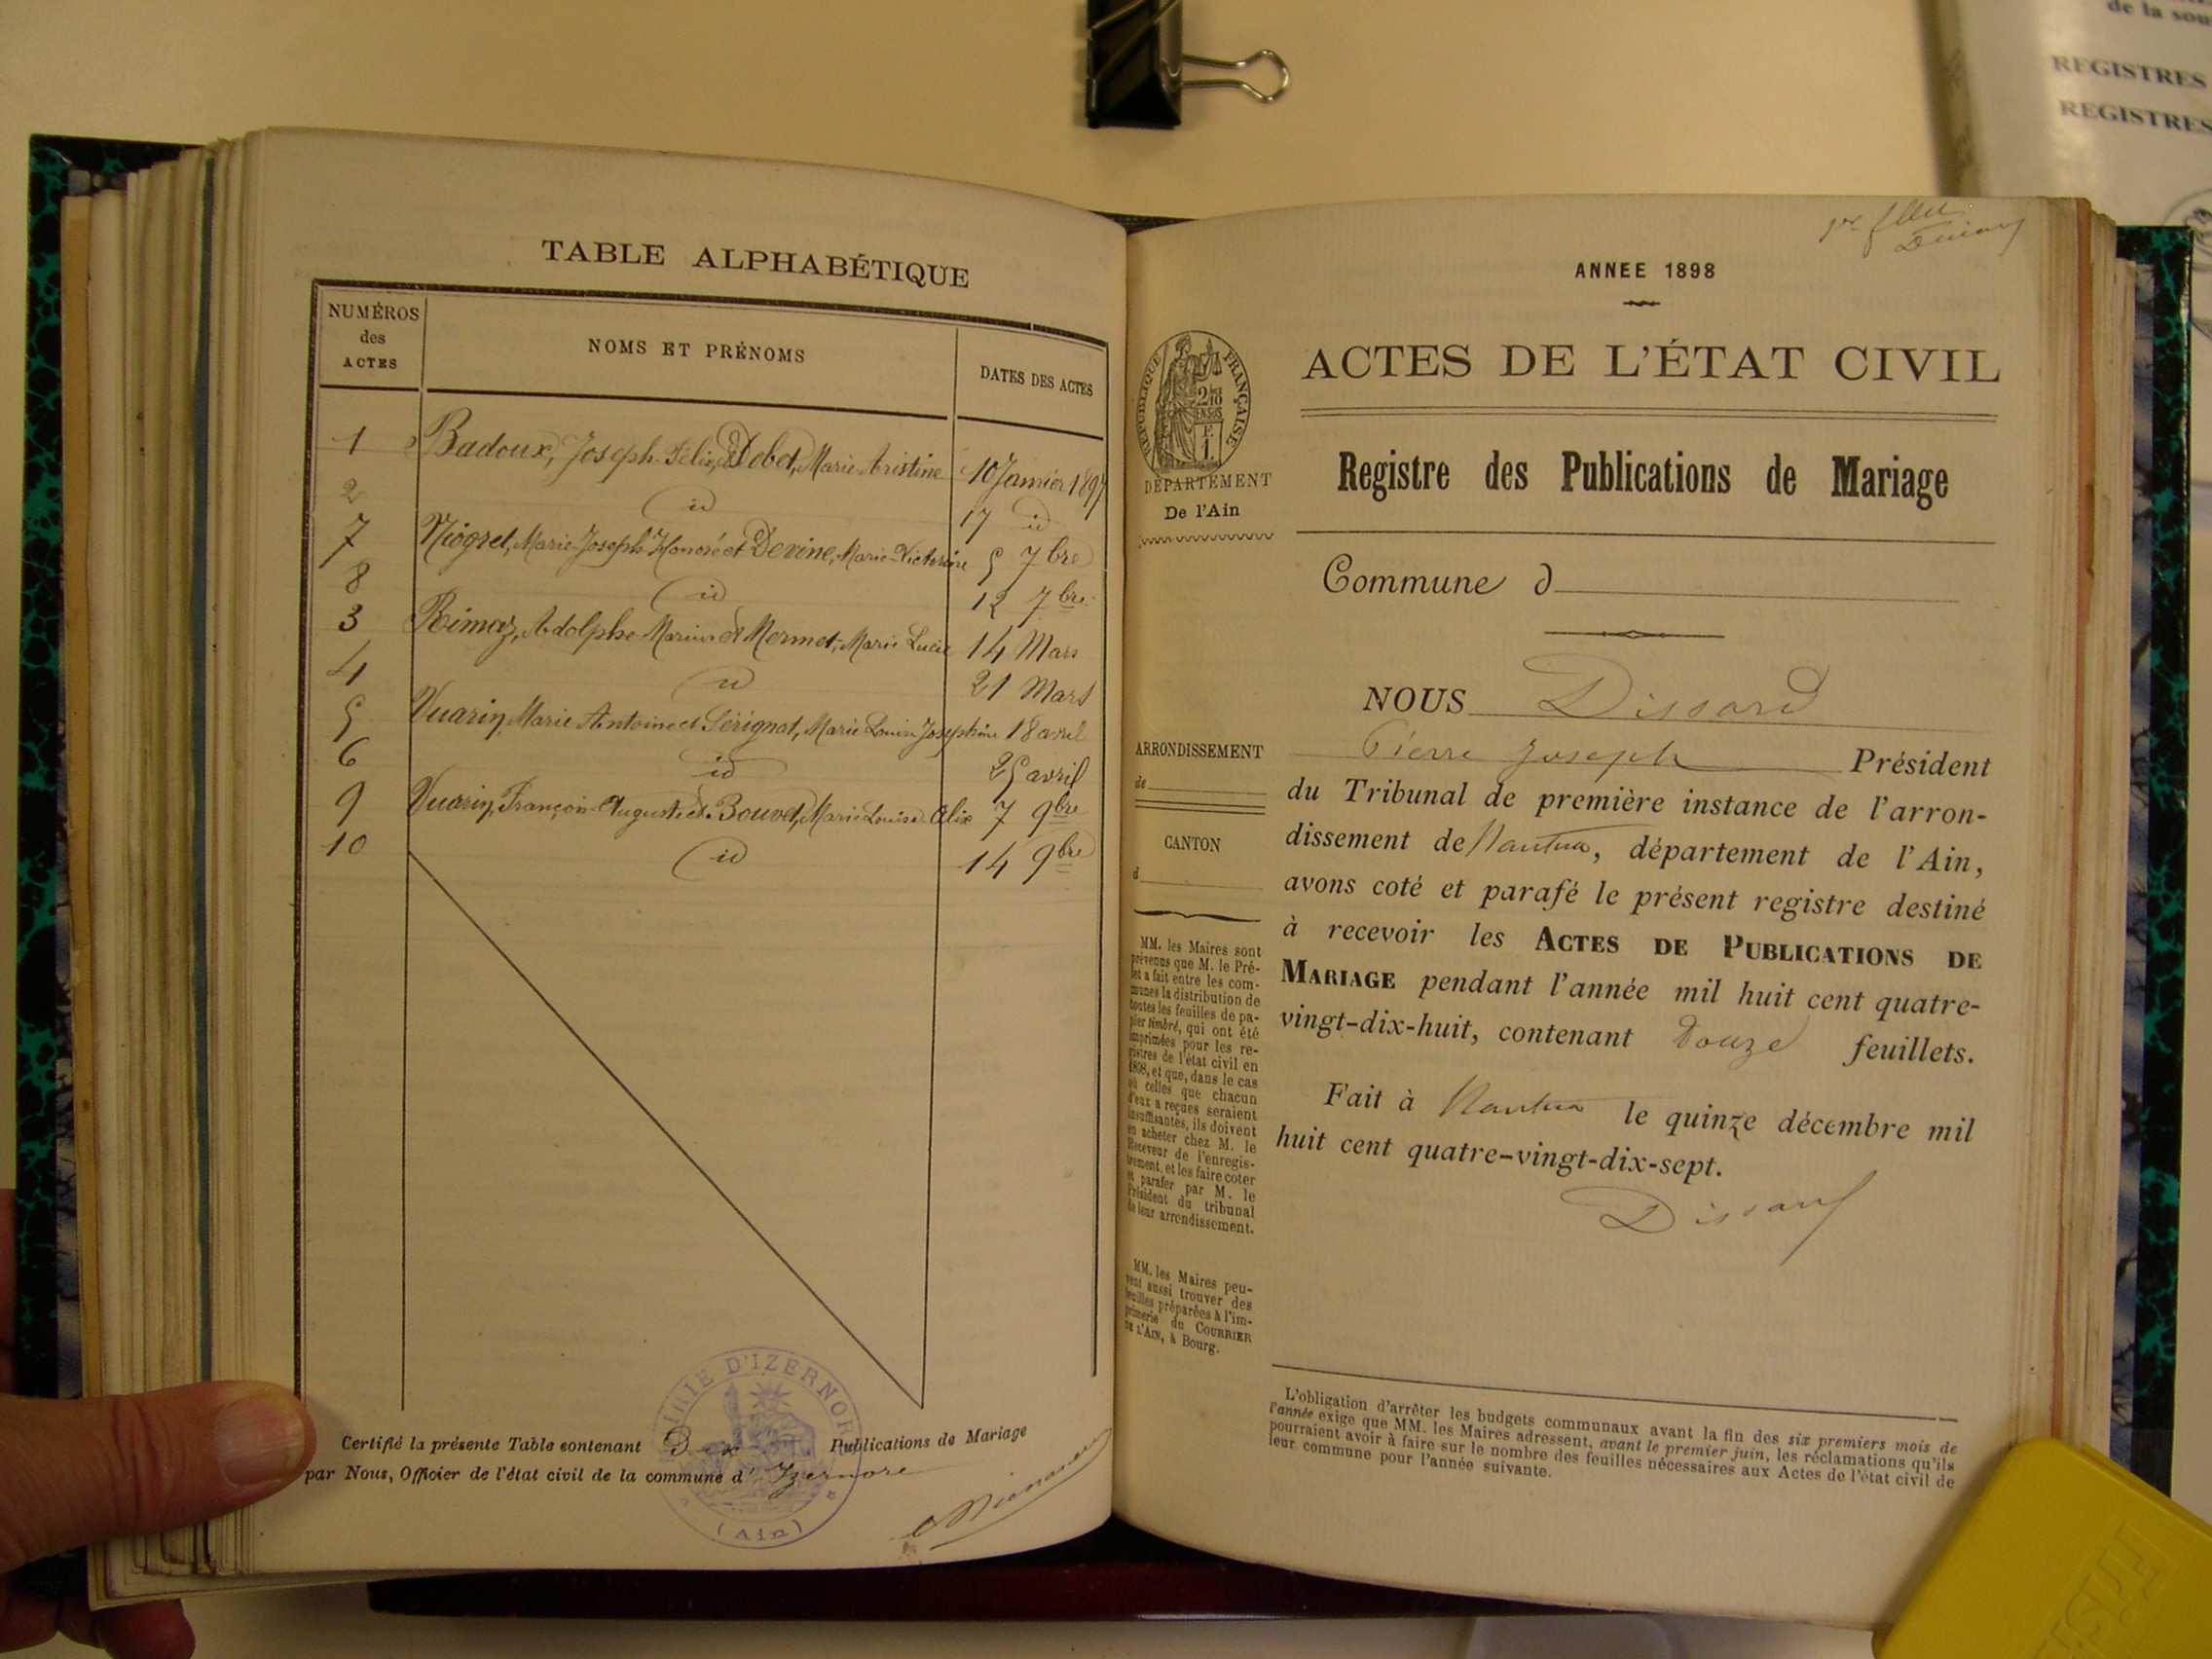 de la sou
REGISTRES
REGISTRES
TABLE ALPHABÉTIQUE
NUMÉROS
des
ACTES
NOMS ET PRÉNOMS
DATES DES ACTES
1 Badoux, Joseph-Félix, et Dobet, Marie Aristine 10 Janvier 1897
2 id 17 id
7 Niogret, Marie-Joseph Honoré et Devine, Marie-Victorine 5 7bre
8 id 12 7bre
3 Rimaz, Adolphe-Marius et Mermet, Marie Lucie 14 Mars
4 id 21 Mars
5 Vuarin, Marie Antoine et Sérignat, Marie Louise Joséphine 18 avril
6 id 25 avril
9 Vuarin, François-Auguste et Bouvet, Marie Louise Alix 7 9bre
10 id 14 9bre
MAIRIE D'IZERNORE
(Ain)
Certifié la présente Table contenant Dix Publications de Mariage
par Nous, Officier de l'état civil de la commune d'Izernore
1er
ANNEE 1898
RÉPUBLIQUE FRANÇAISE
DÉPARTEMENT
De l'Ain
ACTES DE L'ÉTAT CIVIL
Registre des Publications de Mariage
Commune d
NOUS Dissard
Pierre Joseph Président
du Tribunal de première instance de l'arron-
dissement de Nantua, département de l'Ain,
avons coté et parafé le présent registre destiné
à recevoir les ACTES DE PUBLICATIONS DE
MARIAGE pendant l'année mil huit cent quatre-
vingt-dix-huit, contenant Douze feuillets.
Fait à Nantua le quinze décembre mil
huit cent quatre-vingt-dix-sept.
Dissard
ARRONDISSEMENT
de
CANTON
d
MM. les Maires sont
prévenus que M. le Pré-
fet a fait entre les com-
munes la distribution de
toutes les feuilles de pa-
pier timbré, qui ont été
imprimées pour les re-
gistres de l'état civil en
1898, et que, dans le cas
où celles que chacun
d'eux a reçues seraient
insuffisantes, ils doivent
en acheter chez M. le
Receveur de l'enregis-
trement, et les faire coter
et parafer par M. le
Président du tribunal
de leur arrondissement.
MM. les Maires peu-
vent aussi trouver des
feuilles préparées à l'im-
primerie du COURRIER
DE L'AIN, à Bourg.
L'obligation d'arrêter les budgets communaux avant la fin des six premiers mois de
l'année exige que MM. les Maires adressent, avant le premier juin, les réclamations qu'ils
pourraient avoir à faire sur le nombre des feuilles nécessaires aux Actes de l'état civil de
leur commune pour l'année suivante.